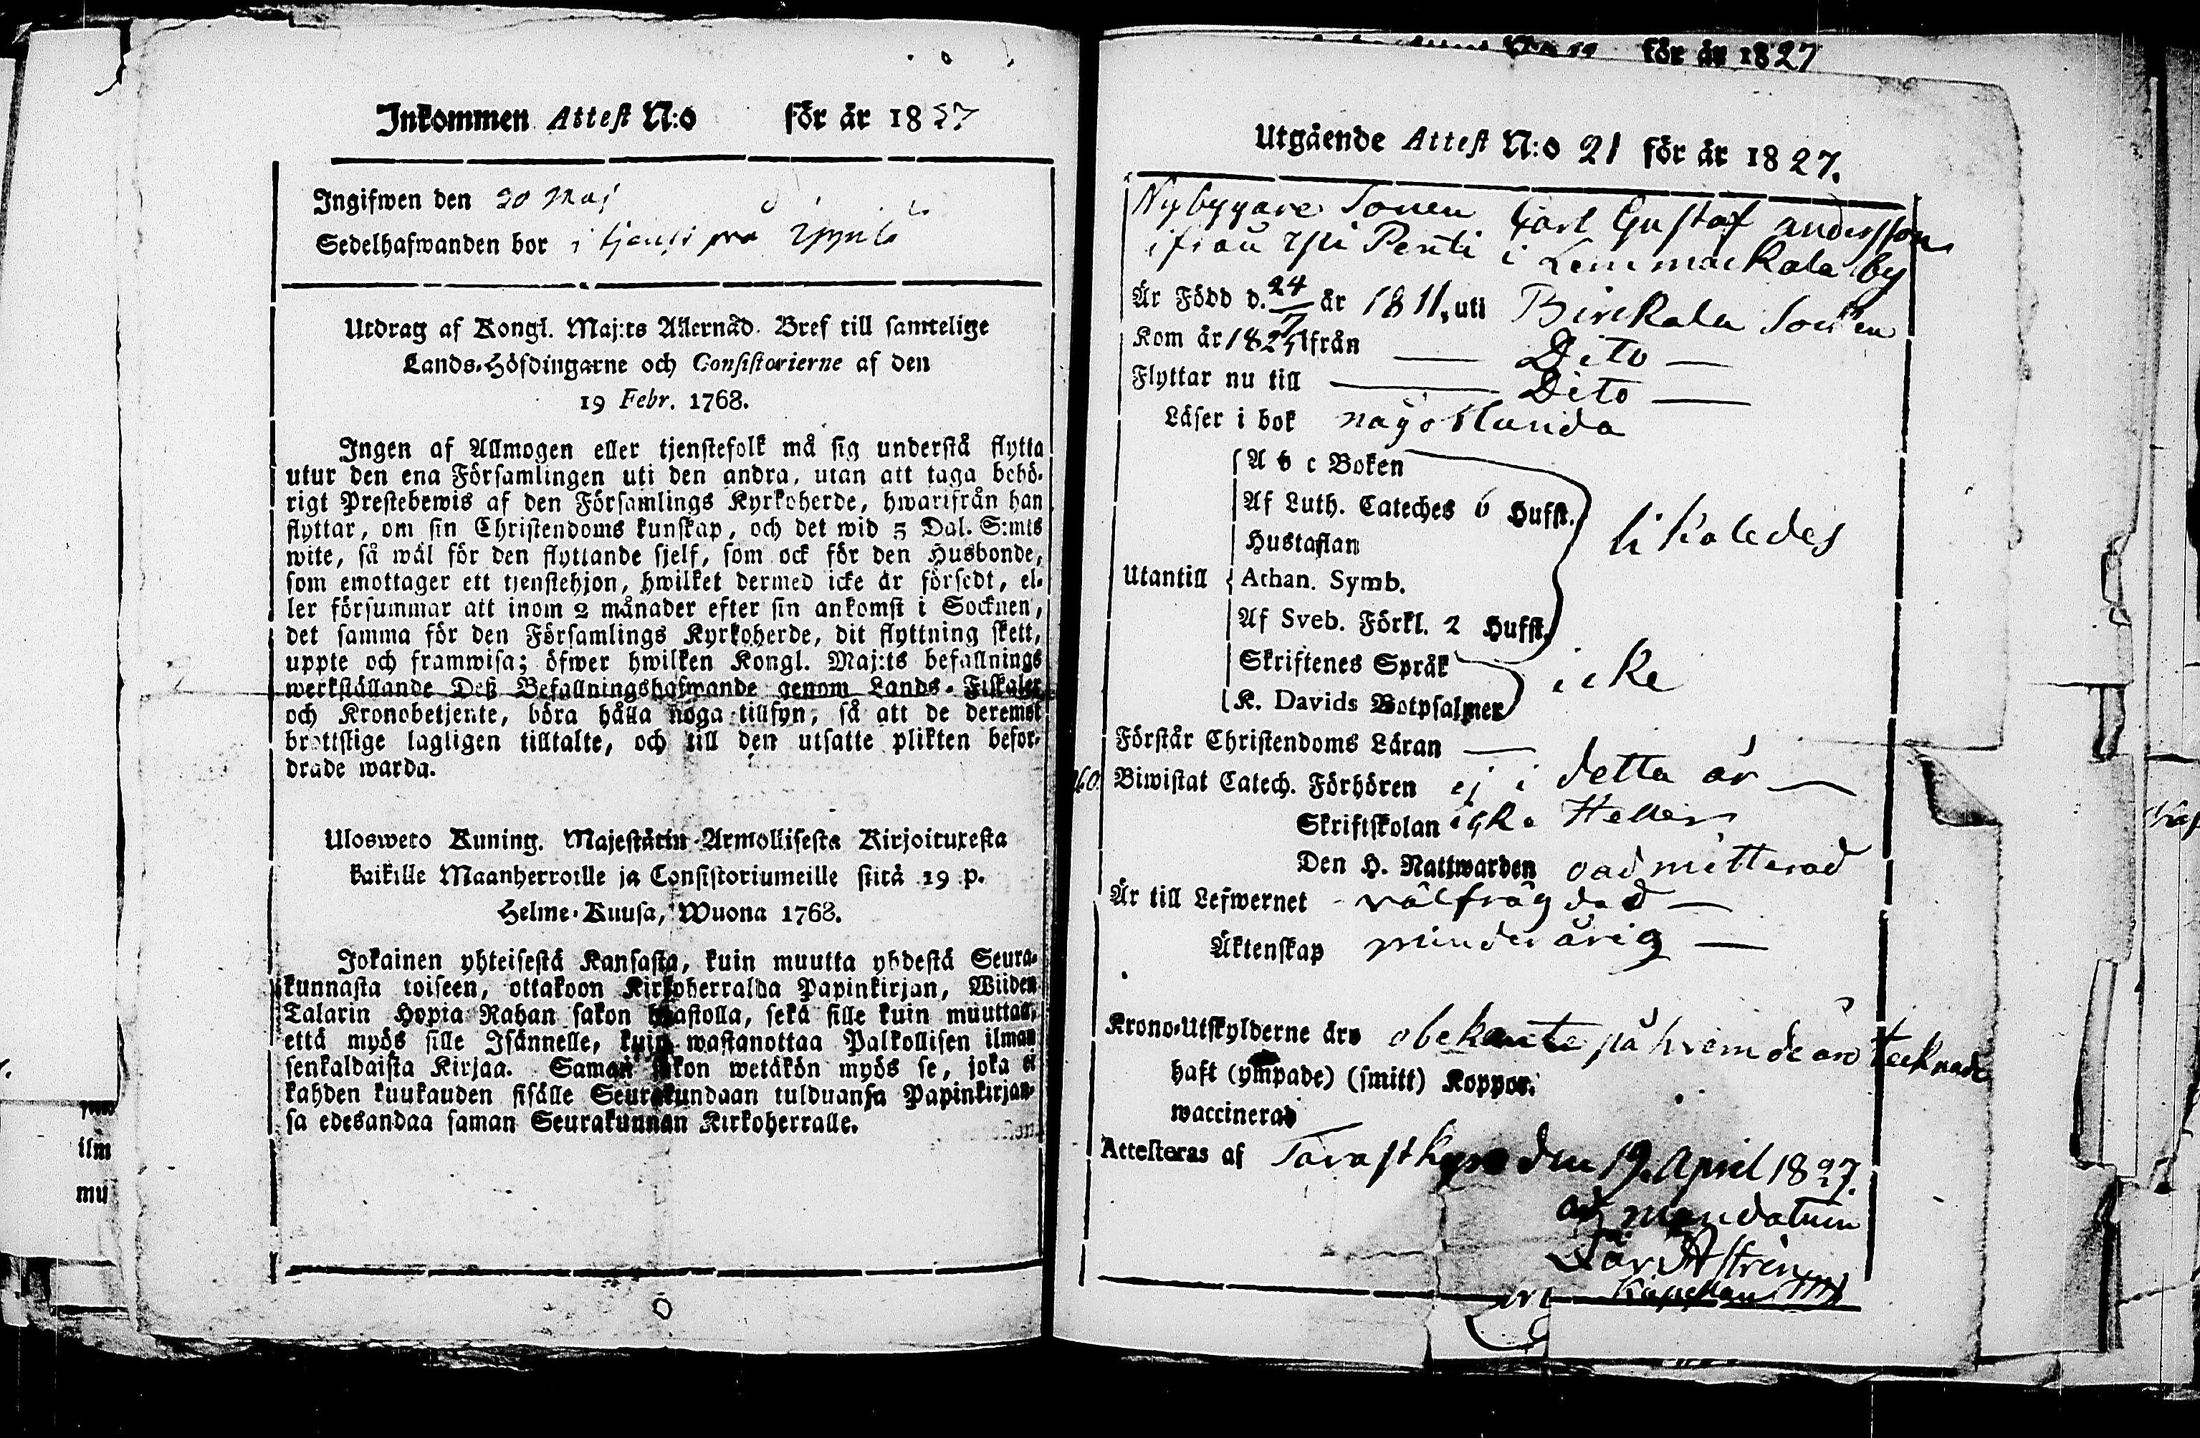 Inkommen Attest N:o för år 1827
Ingifwen den 20 Maj
Sedelhafwanden bor i tjenst på
Utdrag af Kongl. Maj:ts Allernåd. Bref till samtelige
Lands-Höfdingarne och Consistorierne af den
19 Febr. 1768.
Ingen af Allmogen eller tjenstefolk må sig understå flytta
utur den ena Församlingen uti den andra, utan att taga behö-
rigt Prestebewis af den Församlings Kyrkoherde, hwarifrån han
flyttar, om sin Christendoms kunskap, och det wid 5 Dal. S:mts
wite, så wäl för den flyttande sjelf, som ock för den Husbonde,
som emottager ett tjenstehjon, hwilket dermed icke är försedt, el-
ler försummar att inom 2 månader efter sin ankomst i Socknen,
det samma för den Församlings Kyrkoherde, dit flyttning skett,
uppte och framwisa; öfwer hwilken Kongl. Maj:ts befallnings
werkställande Deß Befallningshafwande genom Lands-Fiskaler
och Kronobetjente, böra hålla noga tillsyn, så att de deremot
brottslige lagligen tilltalte, och till den utsatte plikten befor-
drade warda.
Ulosweto Kuning. Majestätin Armollisesta Kirjoituxesta
kaikille Maanherroille ja Consistoriumeille siitä 19 p.
Helme-Kuusa, Wuona 1768.
Jokainen yhteisestä Kansasta, kuin muutta yhdestä Seura-
kunnasta toiseen, ottakoon Kirkoherralda Papinkirjan, Wiiden
Talarin Hopia Rahan sakon haastolla, sekä sille kuin muuttaa,
että myös sille Isännelle, kuin wastanottaa Palkollisen ilman
senkaldaista Kirjaa. Saman sakon wetäkön myös se, joka ei
kahden kuukauden sisälle Seurakundaan tulduansa Papinkirjan-
sa edesandaa saman Seurakunnan Kirkoherralle.
ilm
mu
för år 1827
Utgående Attest N:o 21 för år 1827.
Nybyggare Sonen Carl Gustaf andersson
ifrån Penti i Lemmackala by
Är Född d. 24/7 år 1811, uti Birckala Socken
Kom år 182 från — Dito —
Flyttar nu till — Dito —
Läser i bok någorlunda
A b c Boken
Af Luth. Cateches 6 Hufst.
Hustaflan
likaledes
Utantill Athan. Symb.
Af Sveb. Förkl. 2 Hufst.
Skriftenes Språk
icke
K. Davids Botpsalmer
Förstår Christendoms Läran —
Biwistat Catech. Förhören ej i detta år —
Skriftskolan icke Heller
Den H. Nattwarden oadmitterad
Är till Lefwernet välfrägdad —
Äktenskap minderårig —
Krono-Utskylderne äro obekante på hvem de äro tecknade
haft (ympade) (smitt) Koppor.
waccinerad
Attesteras af Tavastkyro den 19 April 1827.
ad mandatum
Kapellan